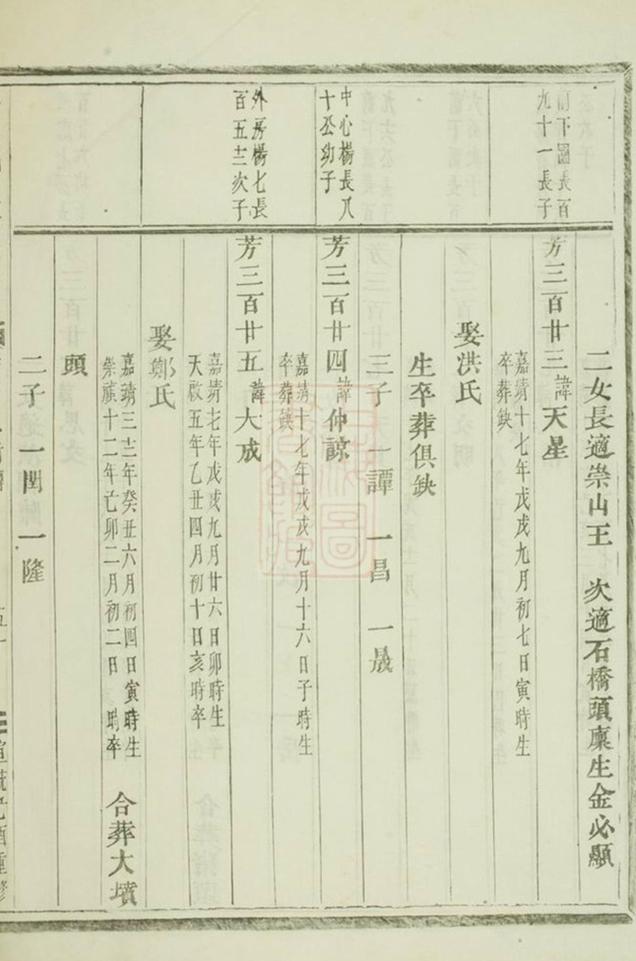 二女長適崇山王 次適石橋頭廪生金必顯
下圖長百
九十一長子
芳三百廿三諱天星
嘉靖十七年戊戌九月初七日寅時生
卒葬缺
娶洪氏
生卒葬俱缺
三子 一譚 一昌 一晟
中心楊長八
十公幼子
芳三百廿四諱仲諒
嘉靖十七年戊戌九月十六日子時生
卒葬缺
外房楊七長
百五十二次子
芳三百廿五諱大成
嘉靖七年戊戌九月廿六日卯時生
天啟五年乙丑四月初十日亥時卒
娶鄭氏
嘉靖三十二年癸丑六月初四日寅時生
崇禎十二年己卯二月初二日時卒 合葬大墳
頭
二子 一 一隆